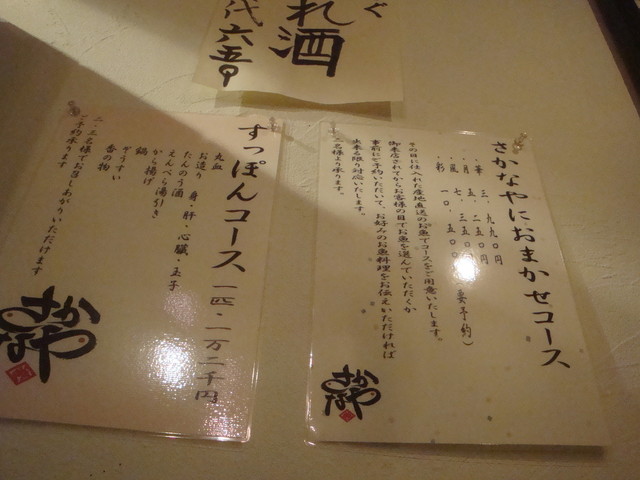 ぐ
れ酒
代六五〇
さかなやにおまかせコース
・華 三、九九〇円
・月 五、二五〇円
・風 七、三五〇
・彩 一〇、五〇〇
要予約)
その日に仕入れた産地直送のお魚でコースをご用意いたします。
御来店されてからお客様の目でお魚を選んでいただくか
事前にご予約いただいて、お好みのお魚料理をお伝えいただければ
出来る限り対応いたします。
二名様より承ります。
さかなや
すっぽんコース 一匹・一万二千円
丸血
お造り 身・肝・心臓・玉子
たんのう酒
えんぺら湯引き
から揚げ
鍋
ぞうすい
香の物
二・三名様でお召しあがりいただけます
ご予約承ります
さかなや